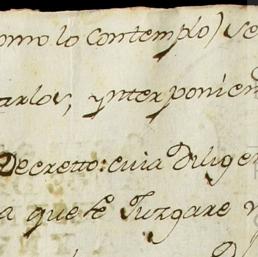 omo lo contemplo) se
arlos, ynterponien
Decretto: cuia Dilige
a que se Juzgare